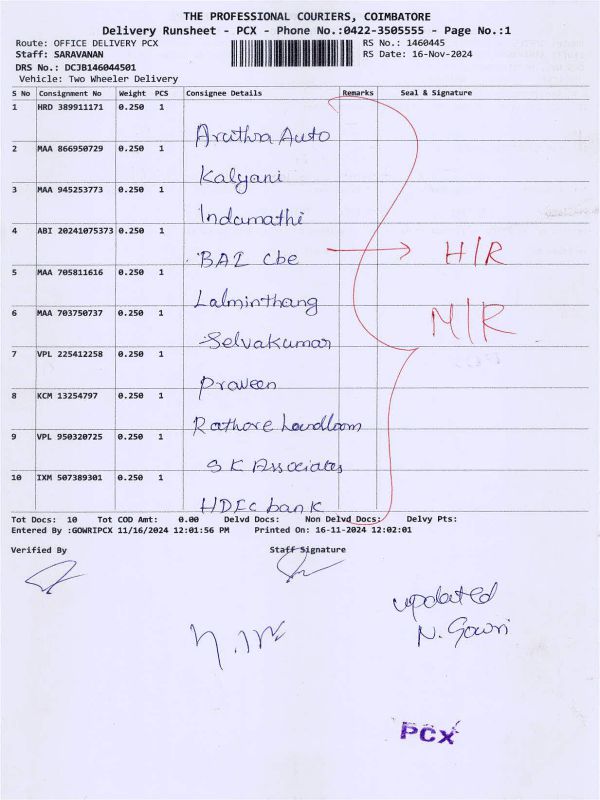 THE PROFESSIONAL COURIERS, COIMBATORE
Delivery Runsheet - PCX - Phone No.:0422-3505555 - Page No.:1
Route: OFFICE DELIVERY PCX RS No.: 1460445
Staff: SARAVANAN RS Date: 16-Nov-2024
DRS No.: DCJB146044501
Vehicle: Two Wheeler Delivery
S No Consignment No Weight PCS Consignee Details Remarks Seal & Signature
1 HRD 389911171 0.250 1
Aruthra Auto
2 MAA 866950729 0.250 1
Kalyani
3 MAA 945253773 0.250 1
Indumathi
4 ABI 20241075373 0.250 1
BAI Cbe H/R
5 MAA 705811616 0.250 1
Lalminthang
6 MAA 703750737 0.250 1
N/R
Selvakumar
7 VPL 225412258 0.250 1
Praveen
8 KCM 13254797 0.250 1
Rathore Handloom
9 VPL 950320725 0.250 1
S K Associates
10 IXM 507389301 0.250 1
HDFC bank
Tot Docs: 10 Tot COD Amt: 0.00 Delvd Docs: Non Delvd Docs: Delvy Pts:
Entered By :GOWRIPCX 11/16/2024 12:01:56 PM Printed On: 16-11-2024 12:02:01
Verified By Staff Signature
updated
N. Gowri
PCX